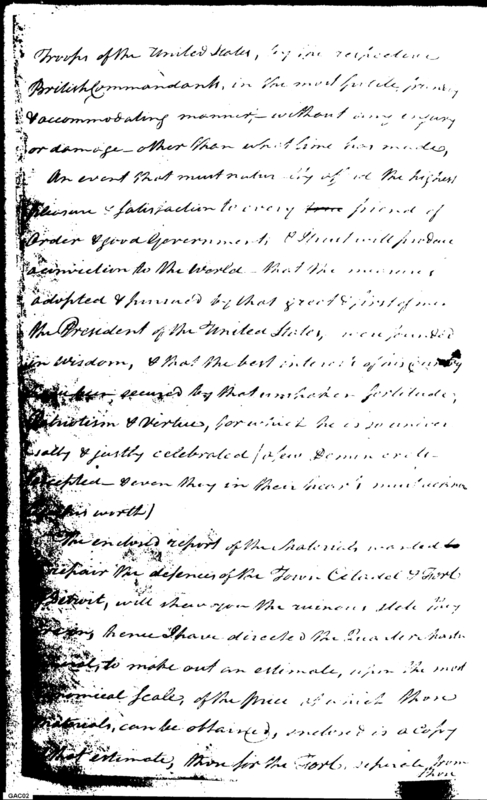 Troops of the United States, by the respective
British Commandants, in the most polite, friendly
& accommodating manner, – without any injury
or damage – other than what time has made,
An event that must naturally afford the highest
pleasure & satisfaction to every friend of
Order & good Government, & I trust will produce
a conviction to the World – that the measures
adopted & pursued by that great & first of men
the President of the United States, were founded
in wisdom, & that the best interests of his country
secured by that unshaken fortitude,
Patriotism & Virtues, for which he is so univer
sally & justly celebrated (a few Democrats
excepted – & even they in their hearts must acknow
his worth)
The enclosed report of the Materials wanted to
repair the defences of the Town Citadel & Fort
Detroit, will shew you the ruinous state they
hence I have directed the Quarter Master
General, to make out an estimate, upon the most
economical Scale, of the price at which those
Materials, can be obtained, enclosed is a Copy
that estimate, those for the Fort, separate from
those
GAC02